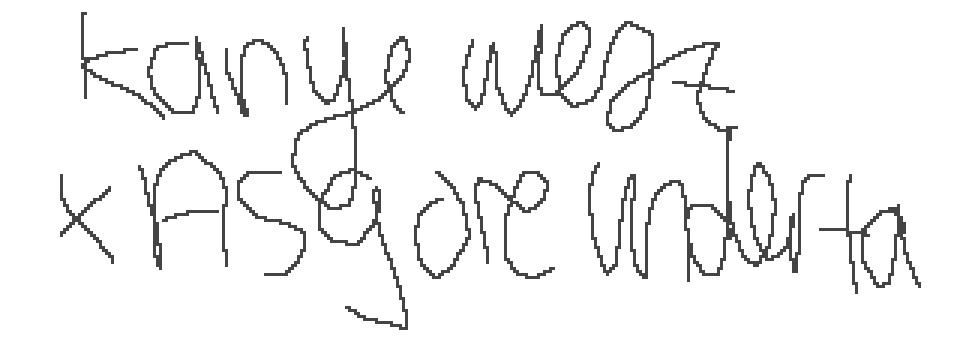 kanye west
x ASgore Underta